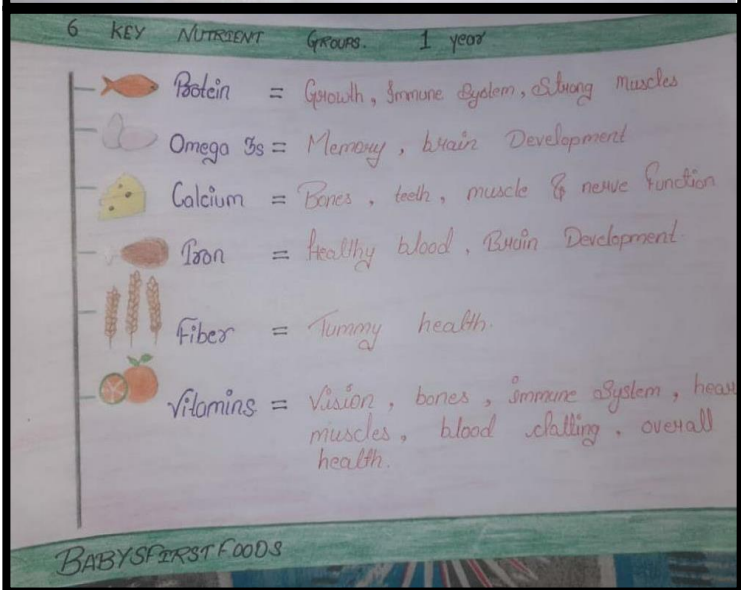 6 KEY NUTRIENT GROUPS. 1 year
Protein = Growth, Immune System, Strong muscles
Omega 3s = Memory, brain Development
Calcium = Bones, teeth, muscle & nerve function
Iron = Healthy blood, Brain Development.
Fiber = Tummy health.
Vitamins = Vision, bones, immune System, hear
muscles, blood clatting, overall
health.
BABYSFIRSTFOODS